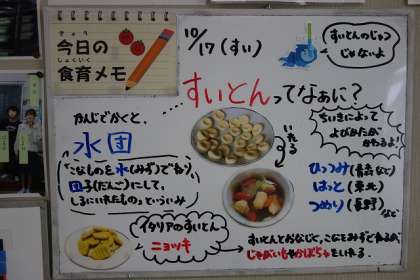 きょう
今日の
しょくいく
食育メモ
10/17(すい)
すいとんのじゅつ
じゃないよ
すいとんってなぁに?
かんじでかくと、
水団
「こなしものを水(みず)でねり、
団子(だんご)にして、
しるにいれたもの」といういみ
いれる
ちいきによって
よびかたが
かわるよ!
ひっつみ(青森など)
はっと(東北)
つめり(長野)
など
イタリアのすいとん
ニョッキ
すいとんとおなじく、こなとみずと
じゃがいもやかぼちゃをいれる。